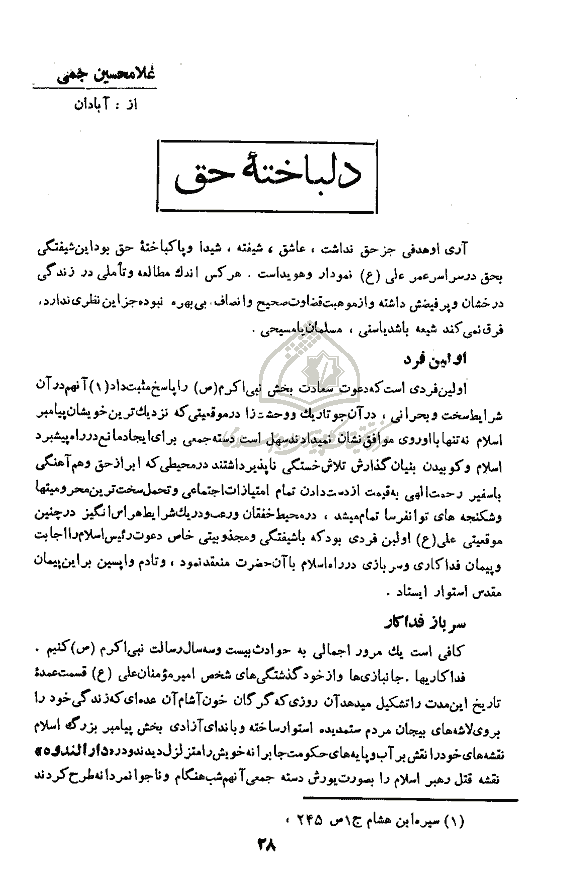 غلامحسین جمی
از : آبادان
دلباختهٔ حق
آری اوهدفی جزحق نداشت ، عاشق ، شیفته ، شیدا وپاکباختهٔ حق بوداین‌شیفتگی
بحق درسراسرعمر علی (ع) نمودار وهویداست . هرکس اندك مطالعه وتأملی در زندگی
درخشان وپرفیضش داشته وازموهبت‌قضاوت‌صحیح وانصاف بی‌بهره نبوده‌جزاین‌نظری‌ندارد،
فرق‌نمی‌کند شیعه باشدیاسنی ، مسلمان‌یامسیحی .
اولین فرد
اولین‌فردی است‌که‌دعوت سعادت بخش نبی‌اکرم(ص) راپاسخ‌مثبت‌داد(۱)آنهم‌درآن
شرایط‌سخت وبحرانی ، درآن‌جوتاریك ووحشت‌زا درموقعیتی‌که نزدیك‌ترین‌خویشان‌پیامبر
اسلام نه‌تنها‌بااوروی موافق‌نشان نمیدادندسهل است دسته‌جمعی برای‌ایجادمانع‌درراه‌پیشبرد
اسلام وکوبیدن بنیان‌گذارش تلاش‌خستگی ناپذیرداشتند درمحیطی‌که ابرازحق وهم‌آهنگی
باسفیر رحمت‌الهی به‌قیمت ازدست‌دادن تمام امتیازات‌اجتماعی وتحمل‌سخت‌ترین‌محرومیتها
وشکنجه های توانفرسا تمام‌میشد ، درمحیط‌خفقان ورعب‌ودریك‌شرایط‌هراس‌انگیز درچنین
موقعیتی علی(ع) اولین فردی بودکه باشیفتگی ومجذوبیتی خاص دعوت‌رئیس‌اسلام‌رااجابت
وپیمان فداکاری وسربازی درراه‌اسلام باآن‌حضرت منعقدنمود ، وتادم واپسین براین‌پیمان
مقدس استوار ایستاد .
سرباز فداکار
کافی است یك مرور اجمالی به حوادث‌بیست وسه‌سال‌رسالت نبی‌اکرم (ص)کنیم .
فداکاریها ، جانبازی‌ها وازخودگذشتگی‌های شخص امیرمؤمنان‌علی (ع) قسمت‌عمدهٔ
تاریخ این‌مدت راتشکیل میدهدآن روزی‌که‌گرگان خون‌آشام‌آن عده‌ای‌که‌زندگی‌خود را
بروی‌لاشه‌های بیجان مردم ستمدیده استوارساخته وباندای‌آزادی بخش پیامبر بزرگ اسلام
نقشه‌های‌خودرانقش‌برآب‌وپایه‌های‌حکومت‌جابرانه‌خویش‌رامتزلزل‌دیدندودره‌دارالندوه»
نقشه قتل رهبر اسلام را بصورت‌یورش دسته جمعی‌آنهم‌شب‌هنگام وناجوانمردانه‌طرح‌کردند
(۱) سیره‌ابن هشام ج۱ص ۲۴۵ ،
۲۸